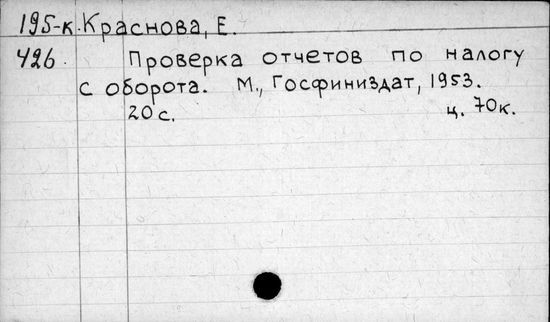 195-к. Краснова, Е.
426. Проверка отчетов по налогу
с оборота. М., Госфиниздат, 1953.
20 с. ц. 70к.